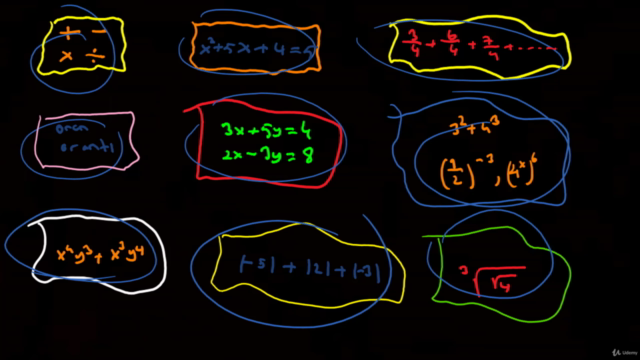 + −
× ÷
x²+5x+4=5
3/4 + 6/4 + 7/4 + ......
oran
orantı
3x+5y=4
2x−3y=8
3²+4³
(1/2)⁻³, (4ˣ)⁶
x⁴y³+x³y⁴
|−5|+|2|+|−3|
³√√4
Udemy